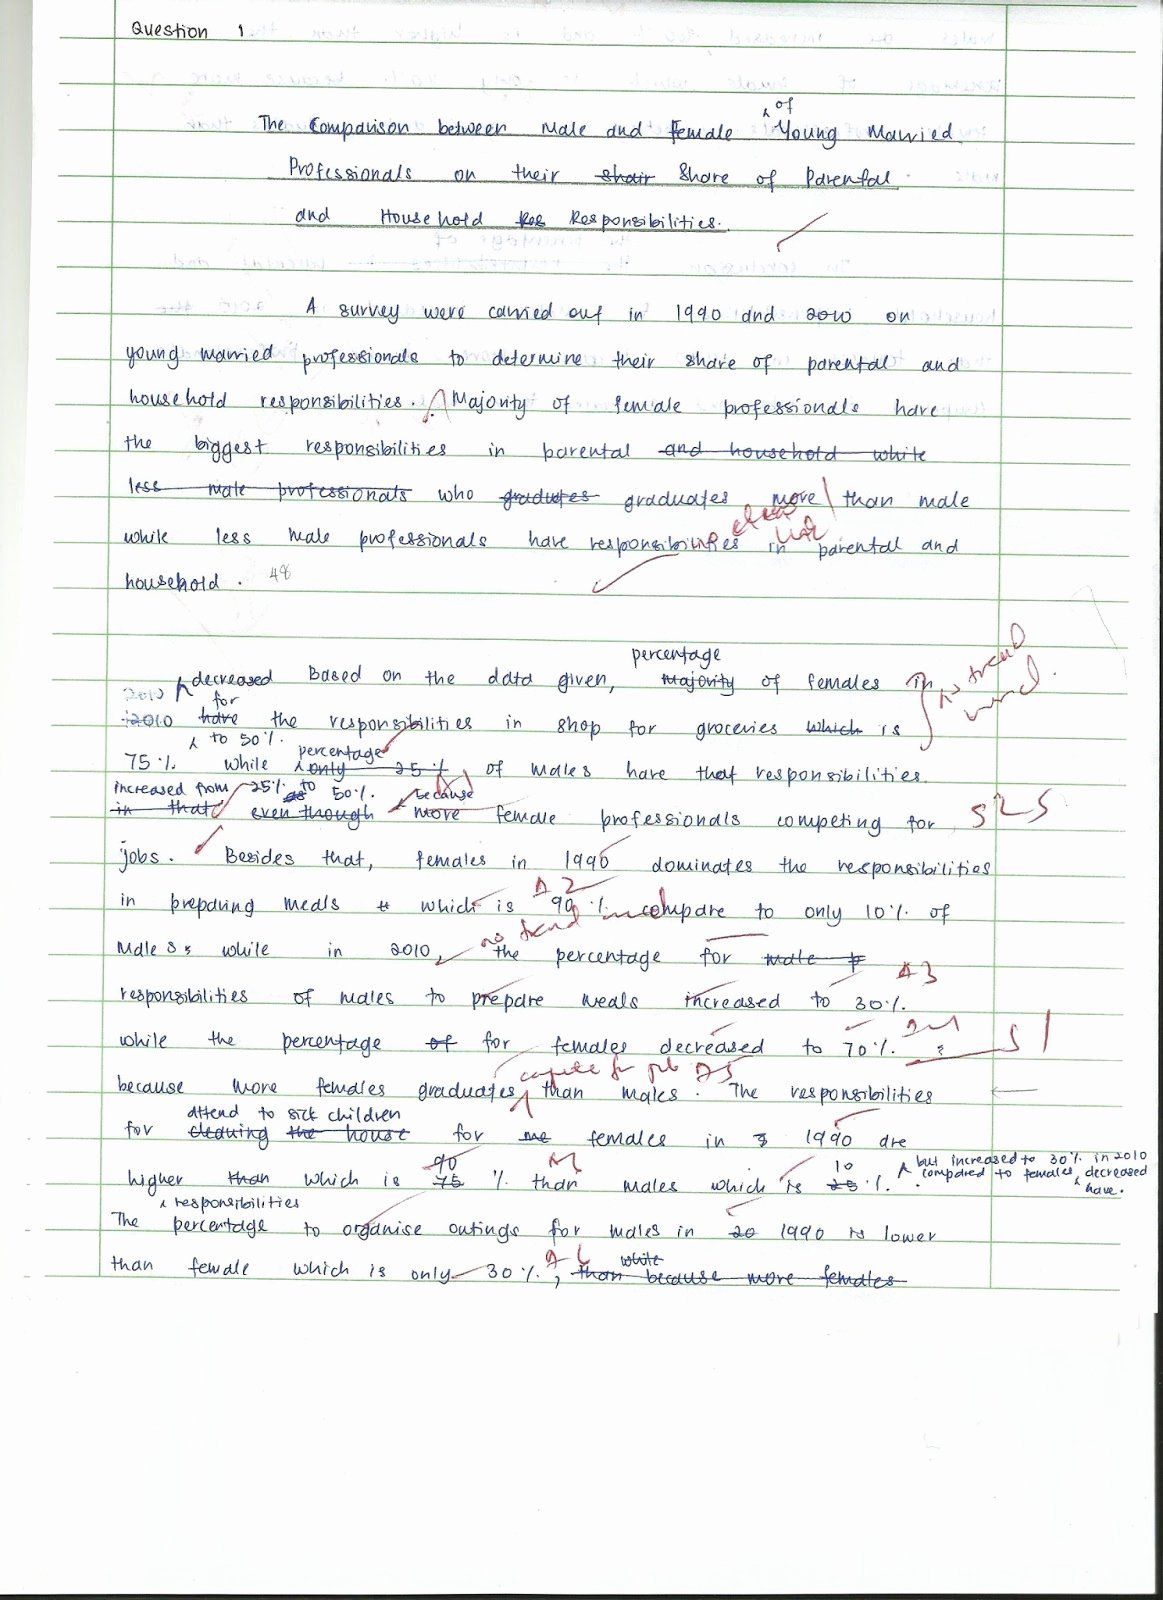 Question 1.
of
The Comparison between Male and Female Young Married
Professionals on their shair Share of Parental
and Household Res Responsibilities.
A survey were carried out in 1990 and 2010 on
young married professionals to determine their share of parental and
household responsibilities. Majority of female professionals have
the biggest responsibilities in parental and household while
less male professionals who graduates graduates more than male
while less male professionals have responsibilities in parental and
household. 48
percentage
decreased Based on the data given, majority of females in
2010 for
2010 have the responsibilities in shop for groceries which is
to 50%. percentage
75%. while only 25% of males have that responsibilities
increased from 25% to 50%. because
in that even though more female professionals competing for S2 S
jobs. Besides that, females in 1990 dominates the responsibilities
A2
in preparing meals which is 90% compare to only 10% of
no trend
males, while in 2010, the percentage for male
A3
responsibilities of males to prepare meals increased to 30%.
while the percentage of for females decreased to 70%. S1
compete for job A5
because more females graduates than males. The responsibilities
attend to sick children
for cleaning the house for females in 1990 are
90 10 but increased to 30% in 2010
higher than which is 75% than males which is 25%. compared to females, decreased
have.
responsibilities
The percentage to organise outings for males in 20 1990 is lower
A6 while
than female which is only 30%, than because more females